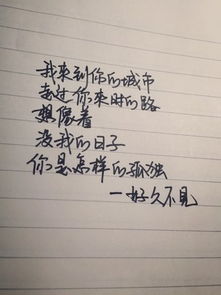 我来到你的城市
走过你来时的路
想像着
没我的日子
你是怎样的孤独
—好久不见